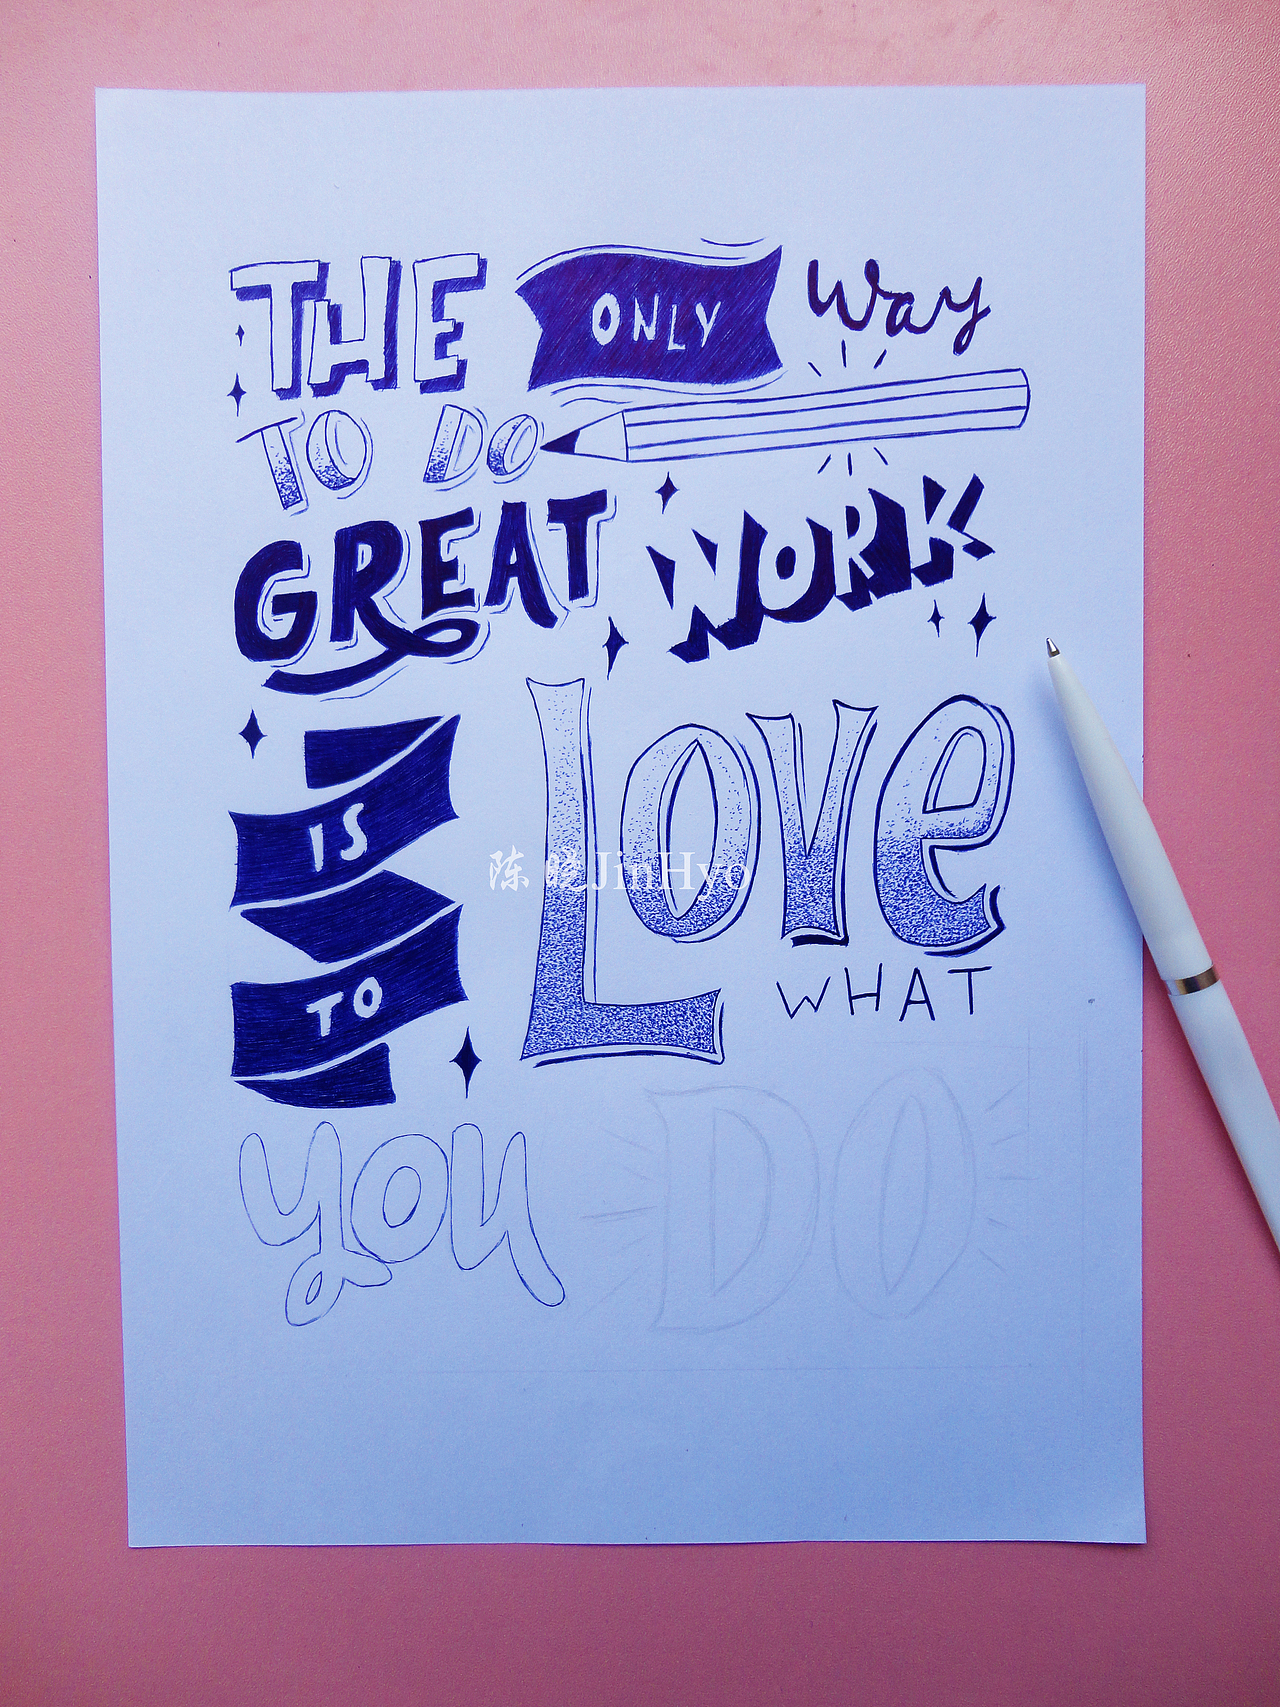 THE ONLY way
TO DO
GREAT WORK
IS
TO
Love
WHAT
you DO
陈晓JinHyo